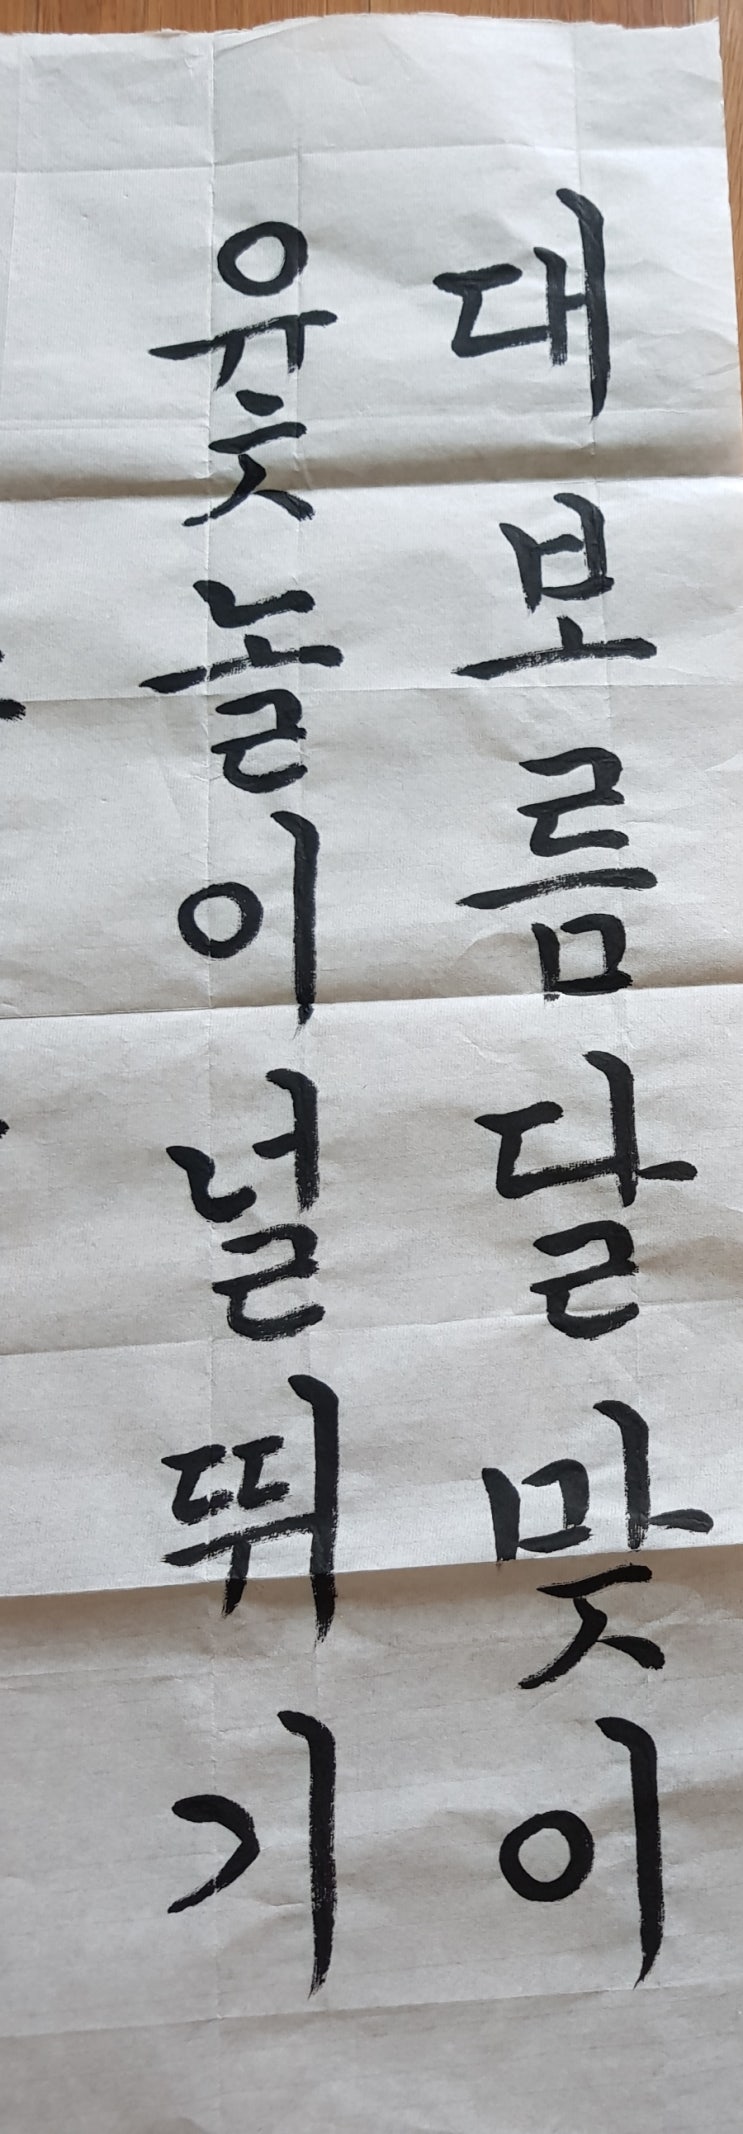 대보름달맞이
윷놀이널뛰기